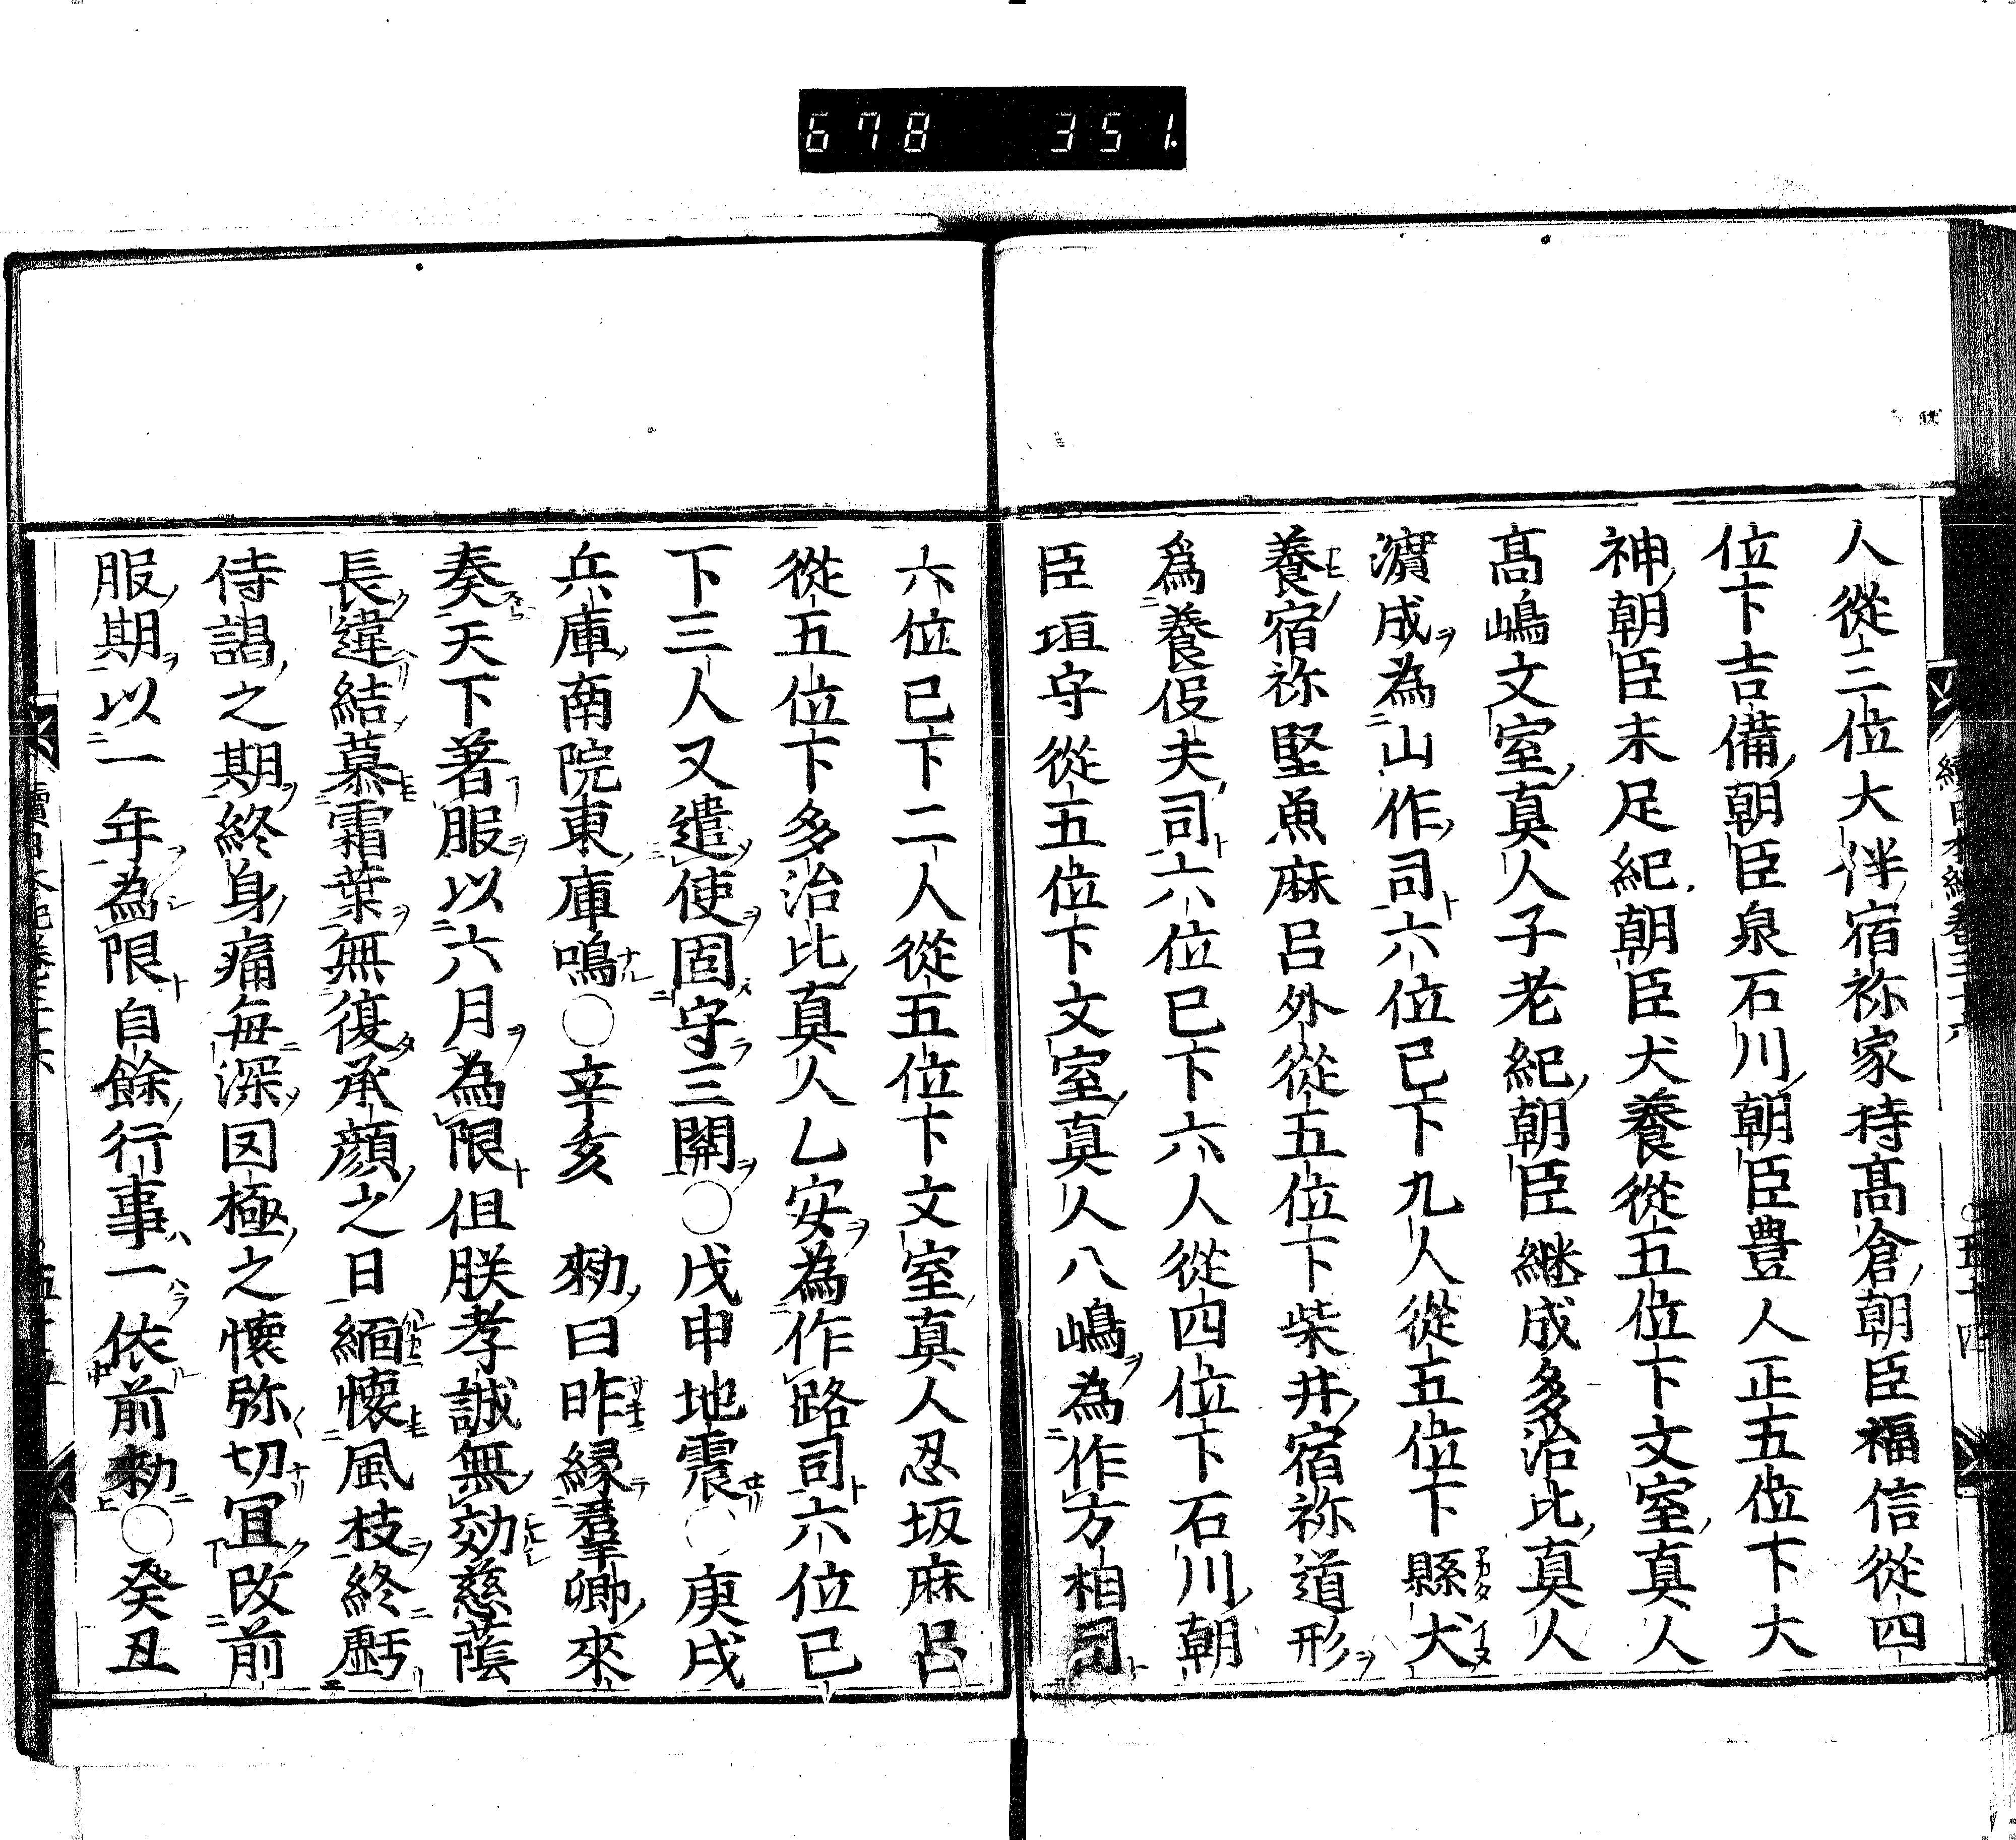 678 351
人從三位大伴宿祢家持髙倉朝臣福信從四
位下吉備朝臣泉石川朝臣豊人正五位下大
神朝臣末足紀朝臣犬養從五位下文室真人
髙嶋文室真人子老紀朝臣継成多治比真人
濵成為山作司六位已下九人從五位下縣犬
養宿祢堅魚麻呂外從五位下柴井宿祢道形
爲養伇夫司六位已下六人從四位下石川朝
臣垣守從五位下文室真人八嶋為作方相司
六位已下二人從五位下文室真人忍坂麻呂
從五位下多治比真人乙安為作路司六位已
下三人又遣使固守三關○戊申地震○庚戌
兵庫南院東庫鳴○辛亥 勑曰昨縁羣卿來
奏天下著服以六月為限但朕孝誠無効慈蔭
長違結慕霜葉無復承顔之日緬懷風枝終虧
侍謁之期終身痛毎深罔極之懷弥切宜改前
服期以一年為限自餘行事一依前勑○癸丑